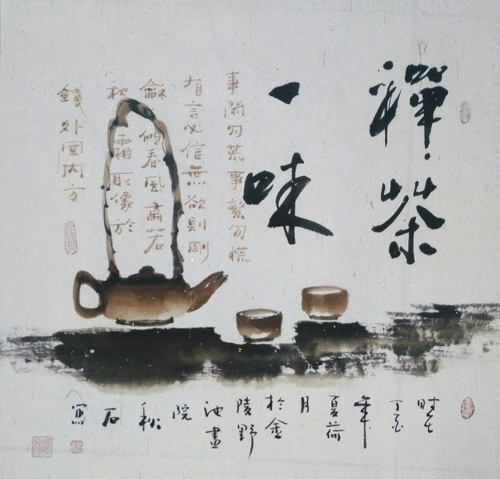 禪茶
一味
事閑勿荒事繁勿慌
有言必信無欲則剛
龢似春風肅若
秋霜取像於
錢外圓内方
時在
丁酉
年
夏荷
月
於金
陵野
池畫
院
秋
石
寫